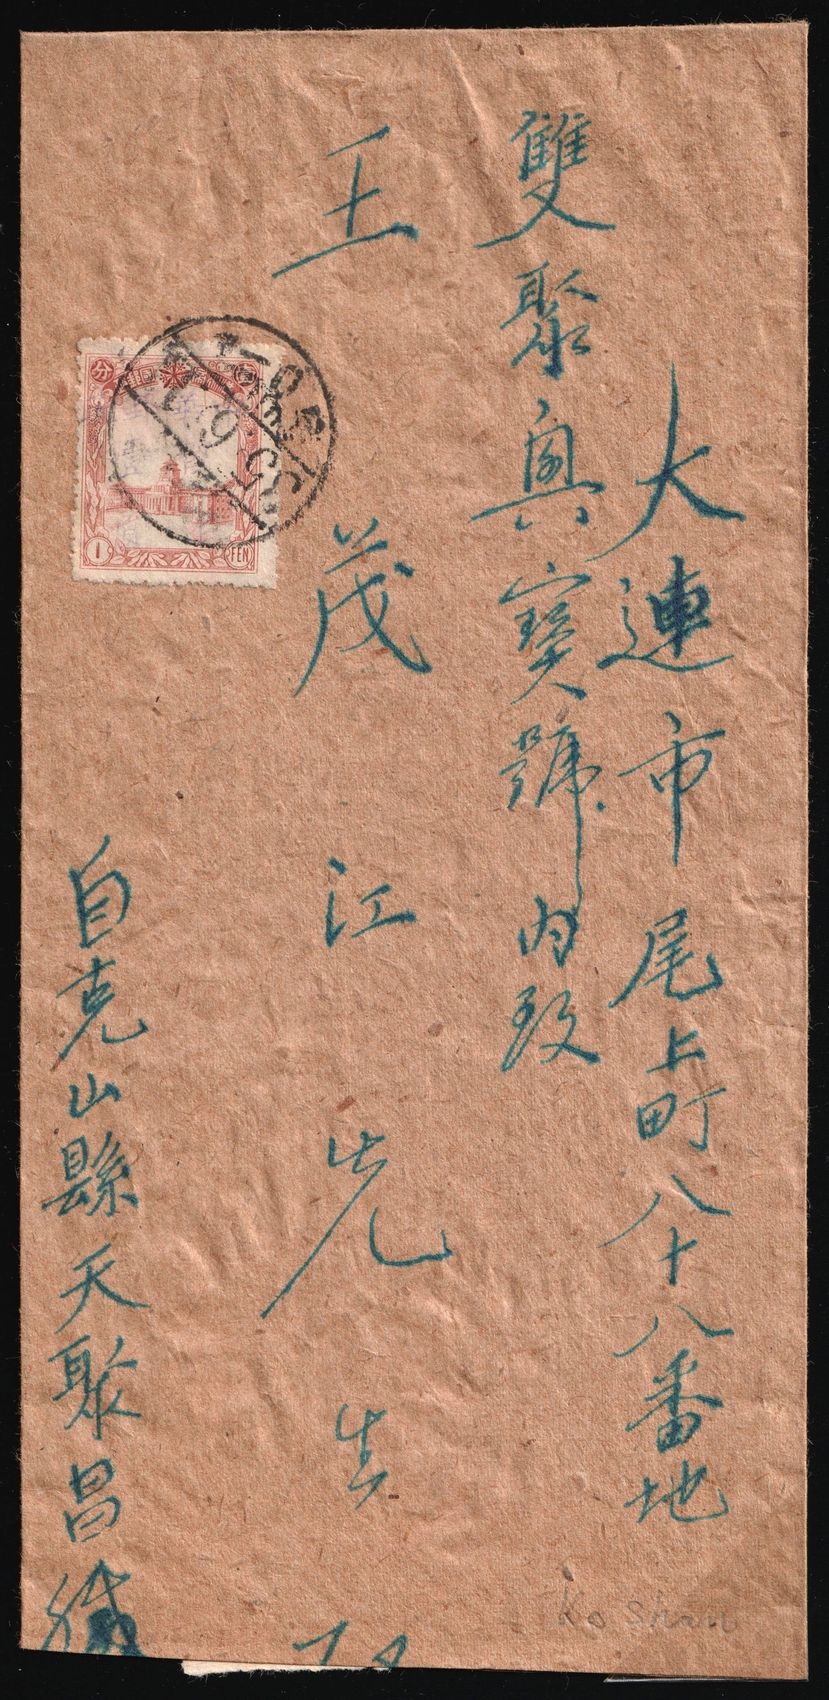 大連市尾上町八十八番地
雙聚興寶號內致
王茂江先生
自克山縣天聚昌緘
分
1
FEN
Ko Shan